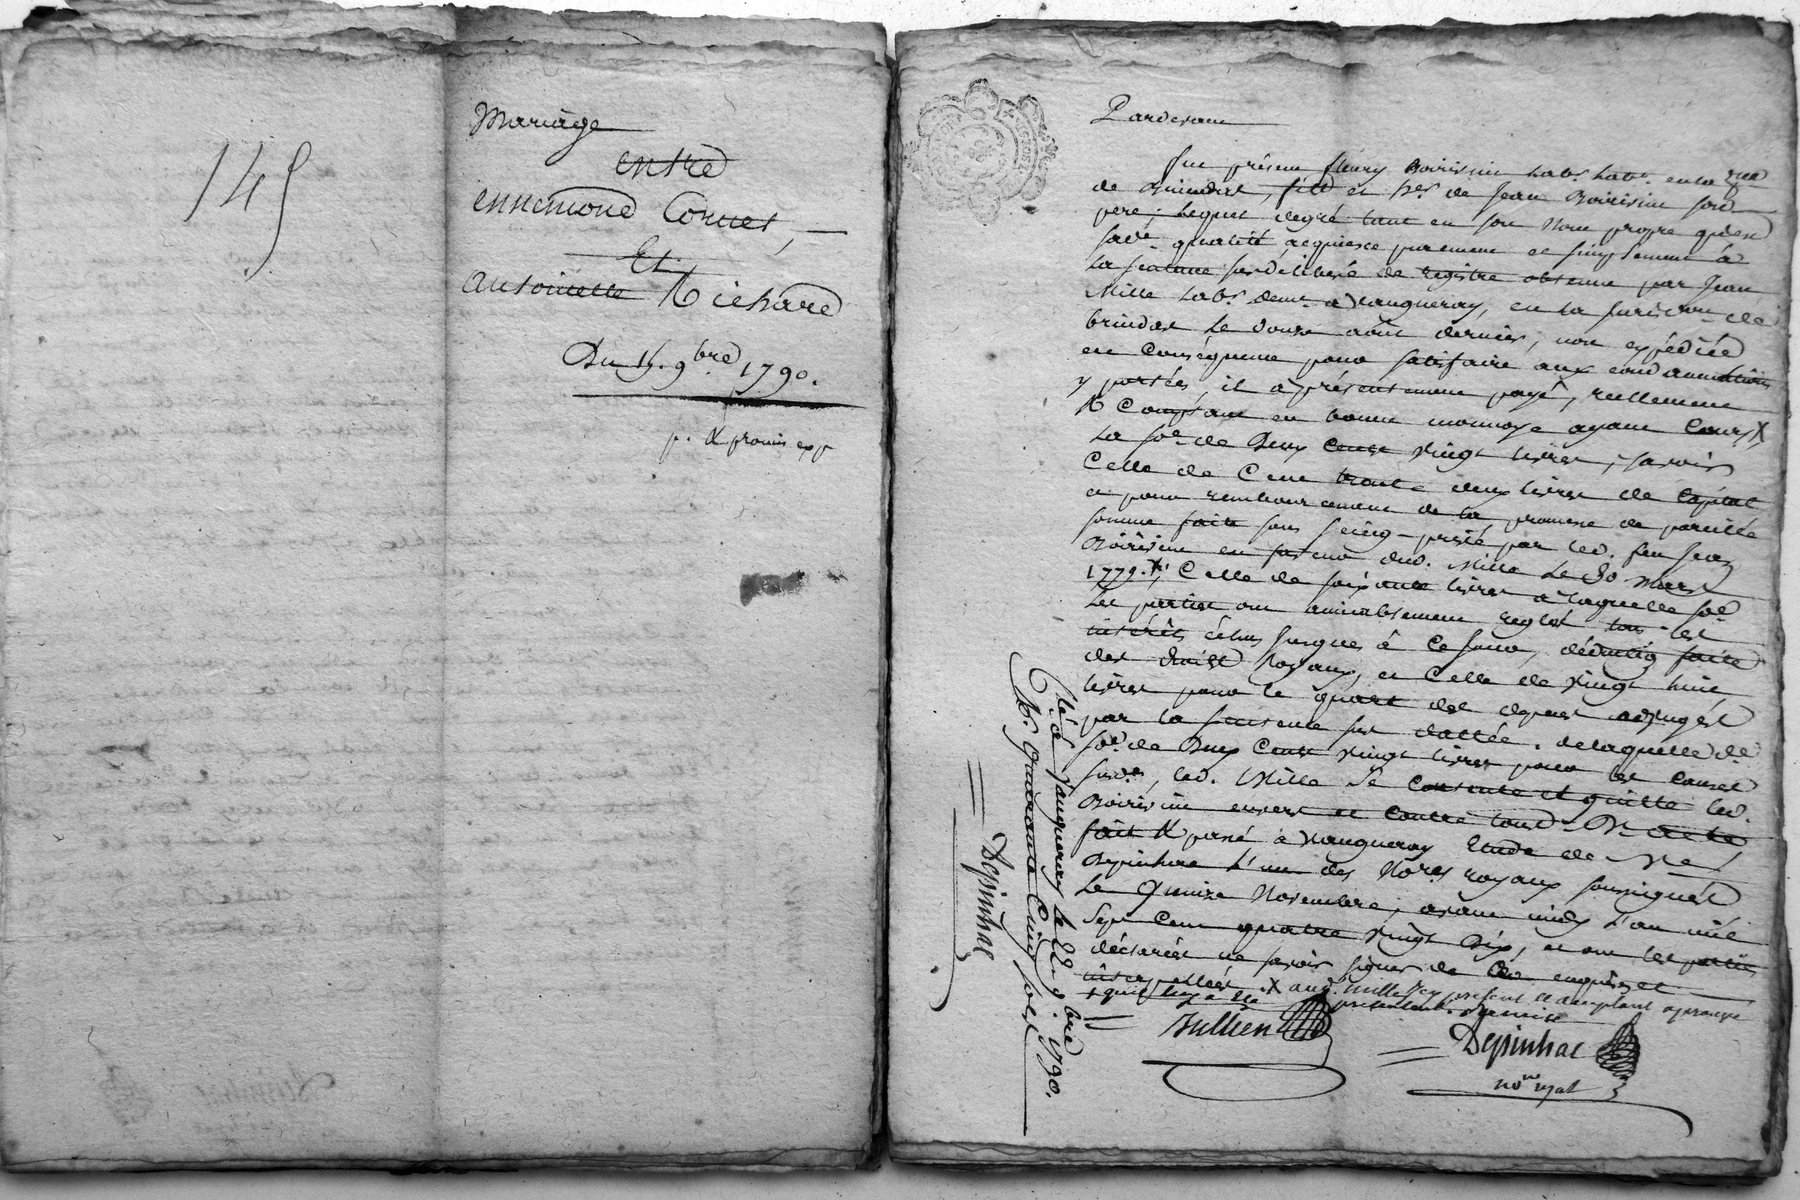 145
Mariage
entre
ennemond Cornet,
Et
antoinette Richard
Du 15. 9bre 1790.
p. & promis exp
Pardevant
fut présent fleury Boirivin labr. habt. en la
de Brindas, fils et hr. de Jean Boirivin son
pere, lequel degré tant en son Nom propre qu'en
sade. qualité acquiesce purement et simplement à
la sentence sur délibéré de registre obtenue par Jean
Mille labr. demt. à Vaugneray, en la Juridon. de
brindas le douze aout dernier, non expédiée
en Conséquence pour satisfaire aux condamnations
y portées, il a présentement payé, reellement
& Comptant en bonne monnoye ayant Cours X
la soe. de Deux Cent vingt livres, savoir
Celle de Cent trente deux livres de Capital
et pour remboursement de la promesse de pareille
somme faite sous seing-privé par led. feu Jean
Boirivin en faveur dud. Mille le 30 Mars
1779. Celle de soixante livres à laquelle soe.
les parties ont amiablement reglé tous les
intérêts échus jusques à Ce jour, déduction faite
des droits Royaux, et Celle de vingt huit
livres pour le quart des depens adjugés
par la sentence sus dattée. de laquelle de.
soe. de Deux Cent vingt livres pour les Causes
susdes, led. Mille se Contente et quitte led.
Boirivin envers et Contre tous. Dt acte
fait & passé à Vaugneray Etude de Me
Depinhac l'un des Nores. royaux soussignés
le Quinze Novembre, avant midy l'an mil
Sept Cent quatre vingt Dix, et ont les parties
déclarées ne savoir signer de Ce enquises et
interpellées. X aud. Mille icy présent et acceptant
Jullien
Depinhac
nore. royal
Clé à Vaugneray le 22. 9bre 1790.
R. Quarante Cinq sols
Depinhac